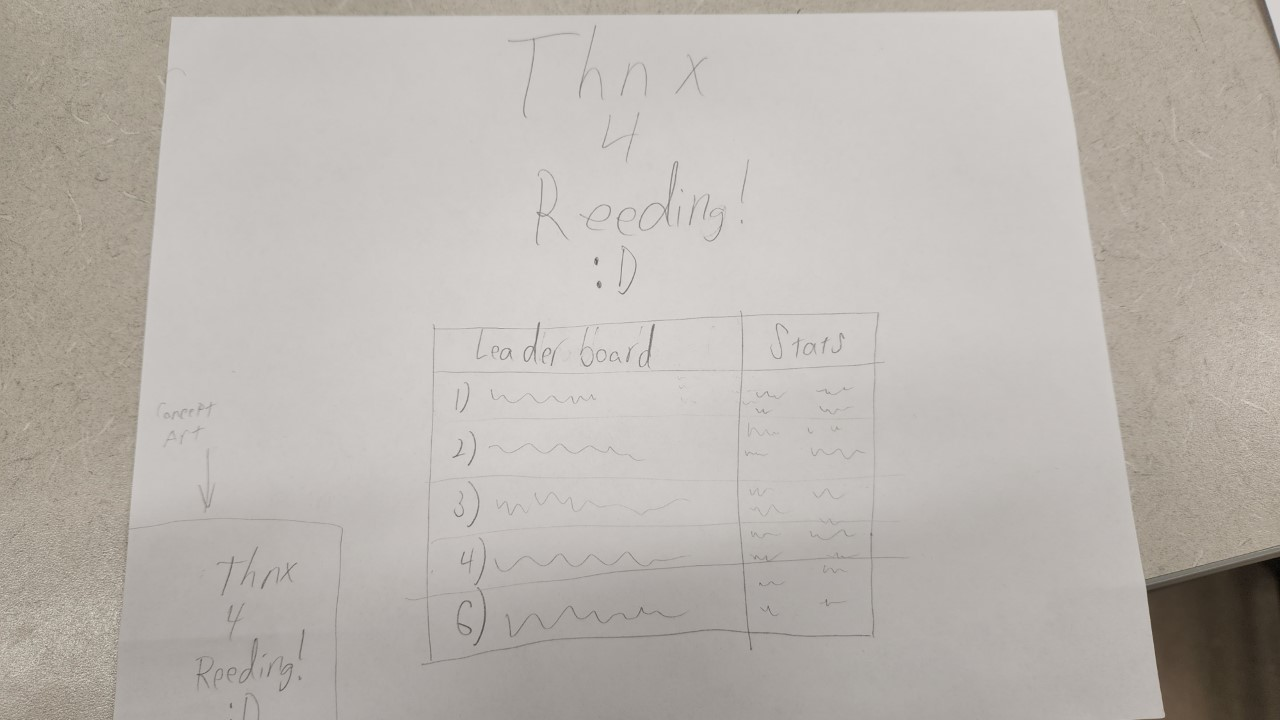 Thnx
4
Reeding!
:D
Leader board Stats
1)
2)
3)
4)
6)
Concept
Art
Thnx
4
Reeding!
:D